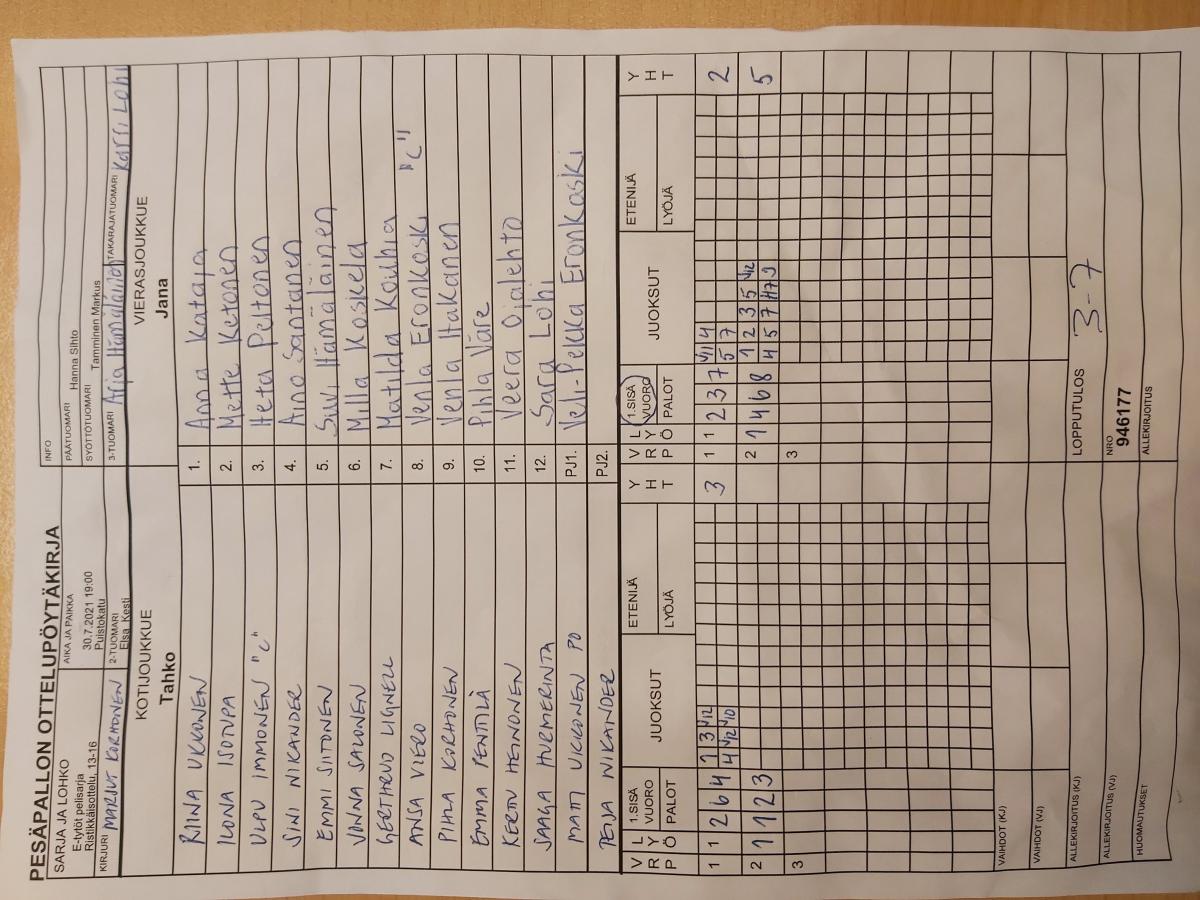 PESÄPALLON OTTELUPÖYTÄKIRJA
SARJA JA LOHKO
E-tytöt pelisarja
Ristikkäisottelu, 13-16
AIKA JA PAIKKA
30.7.2021 19:00
Puistokatu
INFO
PÄÄTUOMARI Hanna Sihto
SYÖTTÖTUOMARI Tamminen Markus
KIRJURI MARJUT KORHONEN
2-TUOMARI Elsa Kesti
3-TUOMARI Arja Hämäläinen
TAKARAJATUOMARI Karri Lohi
KOTIJOUKKUE
Tahko
VIERASJOUKKUE
Jana
RIINA UKKONEN 1. Anna Kataja
ILONA ISOTUPA 2. Mette Ketonen
ULPU IMMONEN "C" 3. Heta Peltonen
SINI NIKANDER 4. Aino Santanen
EMMI SIITONEN 5. Suvi Hämäläinen
JONNA SALONEN 6. Milla Koskela
GERTHRUD LIGNELL 7. Matilda Kouhia
ANSA VIERO 8. Venla Eronkoski "C"
PIHLA KORHONEN 9. Venla Hakanen
EMMA PENTTILÄ 10. Pihla Väre
KERTU HEINONEN 11. Veera Ojalehto
SAAGA HURMERINTA 12. Sara Lohi
MATTI UKKONEN PJ1. Veli-Pekka Eronkoski
TEIJA NIKANDER PJ2.
V R P L Y Ö 1.SISÄ VUORO PALOT JUOKSUT ETENIJÄ LYÖJÄ Y H T
V R P L Y Ö 1.SISÄ VUORO PALOT JUOKSUT ETENIJÄ LYÖJÄ Y H T
1 1 2 6 4 1 3 V12 3
4 V12 V10
1 1 2 3 7 V11 4 2
5 7
2 1 1 2 3
2 1 4 6 8 1 2 3 5 V12 5
4 5 7 H7 9
3
3
VAIHDOT (KJ)
VAIHDOT (VJ)
ALLEKIRJOITUS (KJ)
LOPPUTULOS 3-7
ALLEKIRJOITUS (VJ)
NRO
946177
HUOMAUTUKSET
ALLEKIRJOITUS